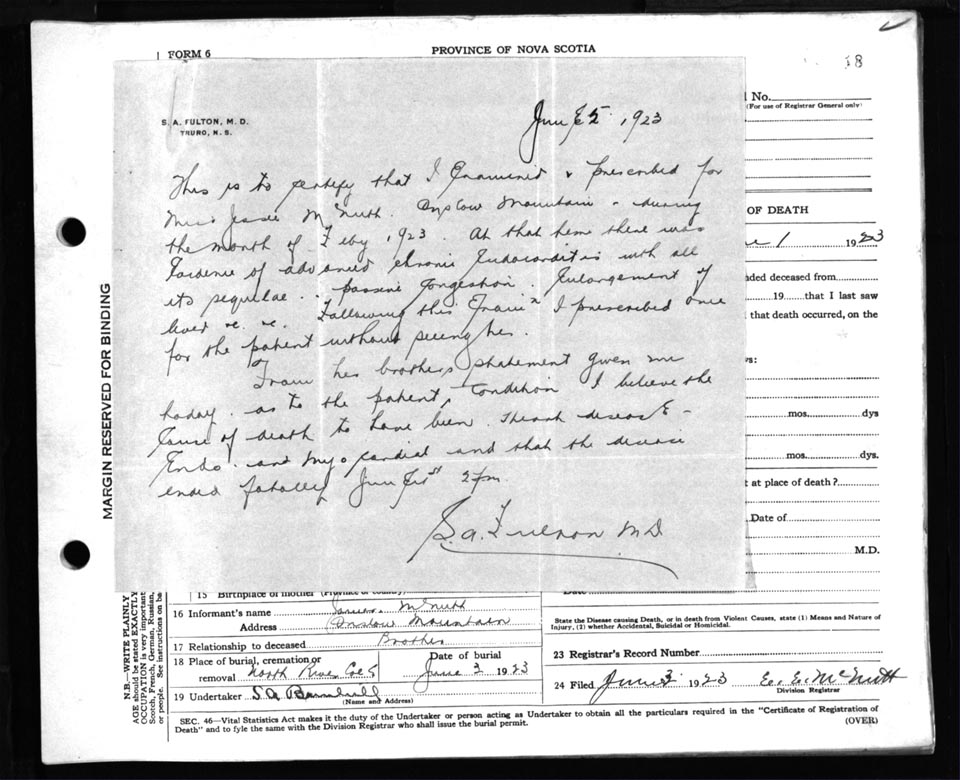 FORM 6
PROVINCE OF NOVA SCOTIA
18
No.
(For use of Registrar General only)
S. A. FULTON, M. D.
TRURO, N. S.
June 2 1923
This is to certify that I Examined & prescribed for
Miss Jessie McNutt. Onslow Mountain - during
the month of Feby 1923. At that time there was
Evidence of advanced chronic Endocarditis with all
its sequelae. passive congestion. Enlargement of
liver etc. etc. Following this Exam I prescribed once
for the patient without seeing her.
From her brothers statement given me
today. as to the patient, condition I believe the
Cause of death to have been Heart disease -
Endo. and Myocardial and that the disease
ended fatally June 1st 2 pm.
S. A. Fulton M.D
OF DEATH
1 1923
nded deceased from
19 that I last saw
that death occurred, on the
mos. dys
mos. dys.
t at place of death?
Date of
M.D.
Date
MARGIN RESERVED FOR BINDING
N.B.—WRITE PLAINLY
AGE should be stated EXACTLY
OCCUPATION is very important
Scotch, French, German, Russian,
or people. See instructions on ba
15 Birthplace of mother (Province or country)
16 Informant's name James McNutt
Address Onslow Mountain
17 Relationship to deceased Brother
18 Place of burial, cremation or removal North River Col Co
Date of burial June 3 1923
19 Undertaker S.A.
(Name and Address)
State the Disease causing Death, or in death from Violent Causes, state (1) Means and Nature of
Injury, (2) whether Accidental, Suicidal or Homicidal.
23 Registrar's Record Number
24 Filed June 3 1923 E. E. McNutt
Division Registrar
SEC. 46—Vital Statistics Act makes it the duty of the Undertaker or person acting as Undertaker to obtain all the particulars required in the "Certificate of Registration of
Death" and to fyle the same with the Division Registrar who shall issue the burial permit.
(OVER)